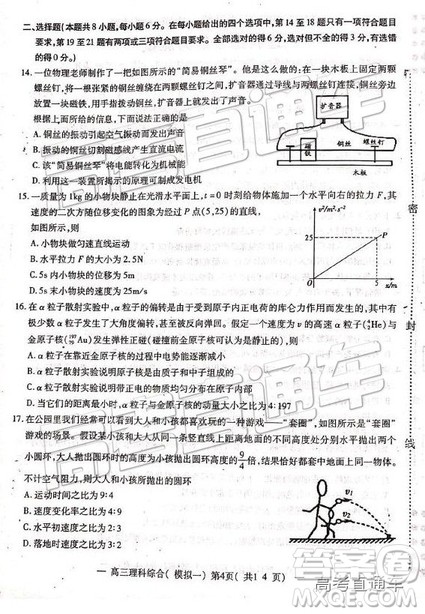 二、选择题(本题共8小题,每小题6分。在每小题给出的四个选项中,第14至18题只有一项符合题目要
求,第19至21题有两项或三项符合题目要求。全部选对的得6分,选对但不全的得3分,有选错
的得0分)
14. 一位物理老师制作了一把如图所示的“简易铜丝琴”。他是这么做的:在一块木板上固定两颗
螺丝钉,将一根张紧的铜丝缠绕在两颗螺丝钉之间,扩音器通过导线与两螺丝钉连接,铜丝旁边
放置一块磁铁,用手指拨动铜丝,扩音器上就发出了声音。
根据上面所给的信息,下面说法正确的是
A. 铜丝的振动引起空气振动而发出声音
B. 铜丝的振动切割磁感线产生直流电流
C. 该“简易铜丝琴”将电能转化为机械能
D. 利用这一装置所揭示的原理可制成发电机
扩音器
磁铁
铜丝
螺丝钉
木板
15. 一质量为1kg的小物块静止在光滑水平面上,t=0时刻给物体施加一个水平向右的拉力F,其
速度的二次方随位移变化的图象为经过P(5,25)的直线,则
A. 小物块做匀速直线运动
B. 水平拉力F的大小为2.5N
C. 5s内小物块的位移为5m
D. 5s末小物块的速度为25m/s
v²/m²·s⁻²
25
P
0
5
x/m
16. 在α粒子散射实验中,α粒子的偏转是由于受到原子内正电荷的库仑力作用而发生的,其中有
极少数α粒子发生了大角度偏转,甚至被反向弹回。假定一个速度为v的高速α粒子(⁴₂He)与
α粒子散射实验说明原子核是由质子和中子组成的
17. 在公园里我们经常可以看到大人和小孩都喜欢玩的一种游戏——“套圈”,如图所示是“套圈”
游戏的场景。假设小孩和大人从同一条竖直线上距离地面的不同高度处分别水平抛出两个
小圆环,大人抛出圆环的高度为小孩抛出圆环高度的9/4倍,结果恰好都套中地面上同一物体。
不计空气阻力,则大人和小孩所抛出的圆环
A. 运动时间之比为9:4
B. 速度变化率之比为4:9
D. 落地时速度之比为3:2
v₁
v₂
密
封
线
— 高三理科综合(模拟一) 第4页(共14页)
高考直通车